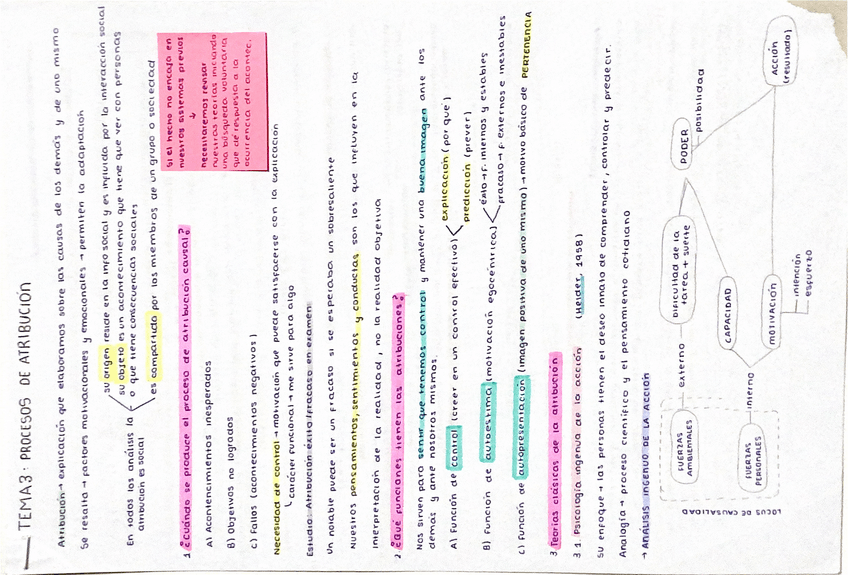 TEMA 3: PROCESOS DE ATRIBUCIÓN
Atribución → explicación que elaboramos sobre las causas de los demás y de uno mismo
Se resalta → factores motivacionales y emocionales → permiten la adaptación
En todos los análisis la atribución es social
su origen reside en la info social y es influida por la interacción social
su objeto es un acontecimiento que tiene que ver con personas
o que tiene consecuencias sociales
es compartida por los miembros de un grupo o sociedad
1 ¿Cuándo se produce el proceso de atribución causal?
A) Acontencimientos inesperados
B) Objetivos no logrados
c) Fallos (acontecimientos negativos)
Si el hecho no encaja en
nuestros sistemas previos
↓
necesitaremos revisar
nuestras teorías iniciando
una búsqueda voluntaria
que dé respuesta a la
ocurrencia del acontec.
Necesidad de control → motivación que puede satisfacerse con la explicación
carácter funcional → me sirve para algo
Estudio: Atribución éxito/fracaso en examen:
Un notable puede ser un fracaso si se esperaba un sobresaliente
Nuestros pensamientos, sentimientos y conductas son los que influyen en la
interpretación de la realidad, no la realidad objetiva
2 ¿Qué funciones tienen las atribuciones?
Nos sirven para sentir que tenemos control y mantener una buena imagen ante los
demás y ante nosotros mismos.
A) Función de control (creer en un control efectivo)
explicación (por qué)
predicción (prever)
B) Función de autoestima (motivación egocéntrica)
éxito → F. internos y estables
fracaso → F. externos e inestables
c) Función de autopresentación (imagen positiva de uno mismo) → motivo básico de PERTENENCIA
3 Teorías clásicas de la atribución
3.1. Psicología ingenua de la acción (Heider, 1958)
Su enfoque → las personas tienen el deseo innato de comprender, controlar y predecir.
Analogía → proceso científico y el pensamiento cotidiano
→ ANÁLISIS INGENUO DE LA ACCIÓN
FUERZAS AMBIENTALES
externo
Dificultad de la tarea + suerte
PODER
posibilidad
ACCIÓN (resultado)
CAPACIDAD
FUERZAS PERSONALES
interno
MOTIVACIÓN
intención
esfuerzo
LOCUS DE CAUSALIDAD